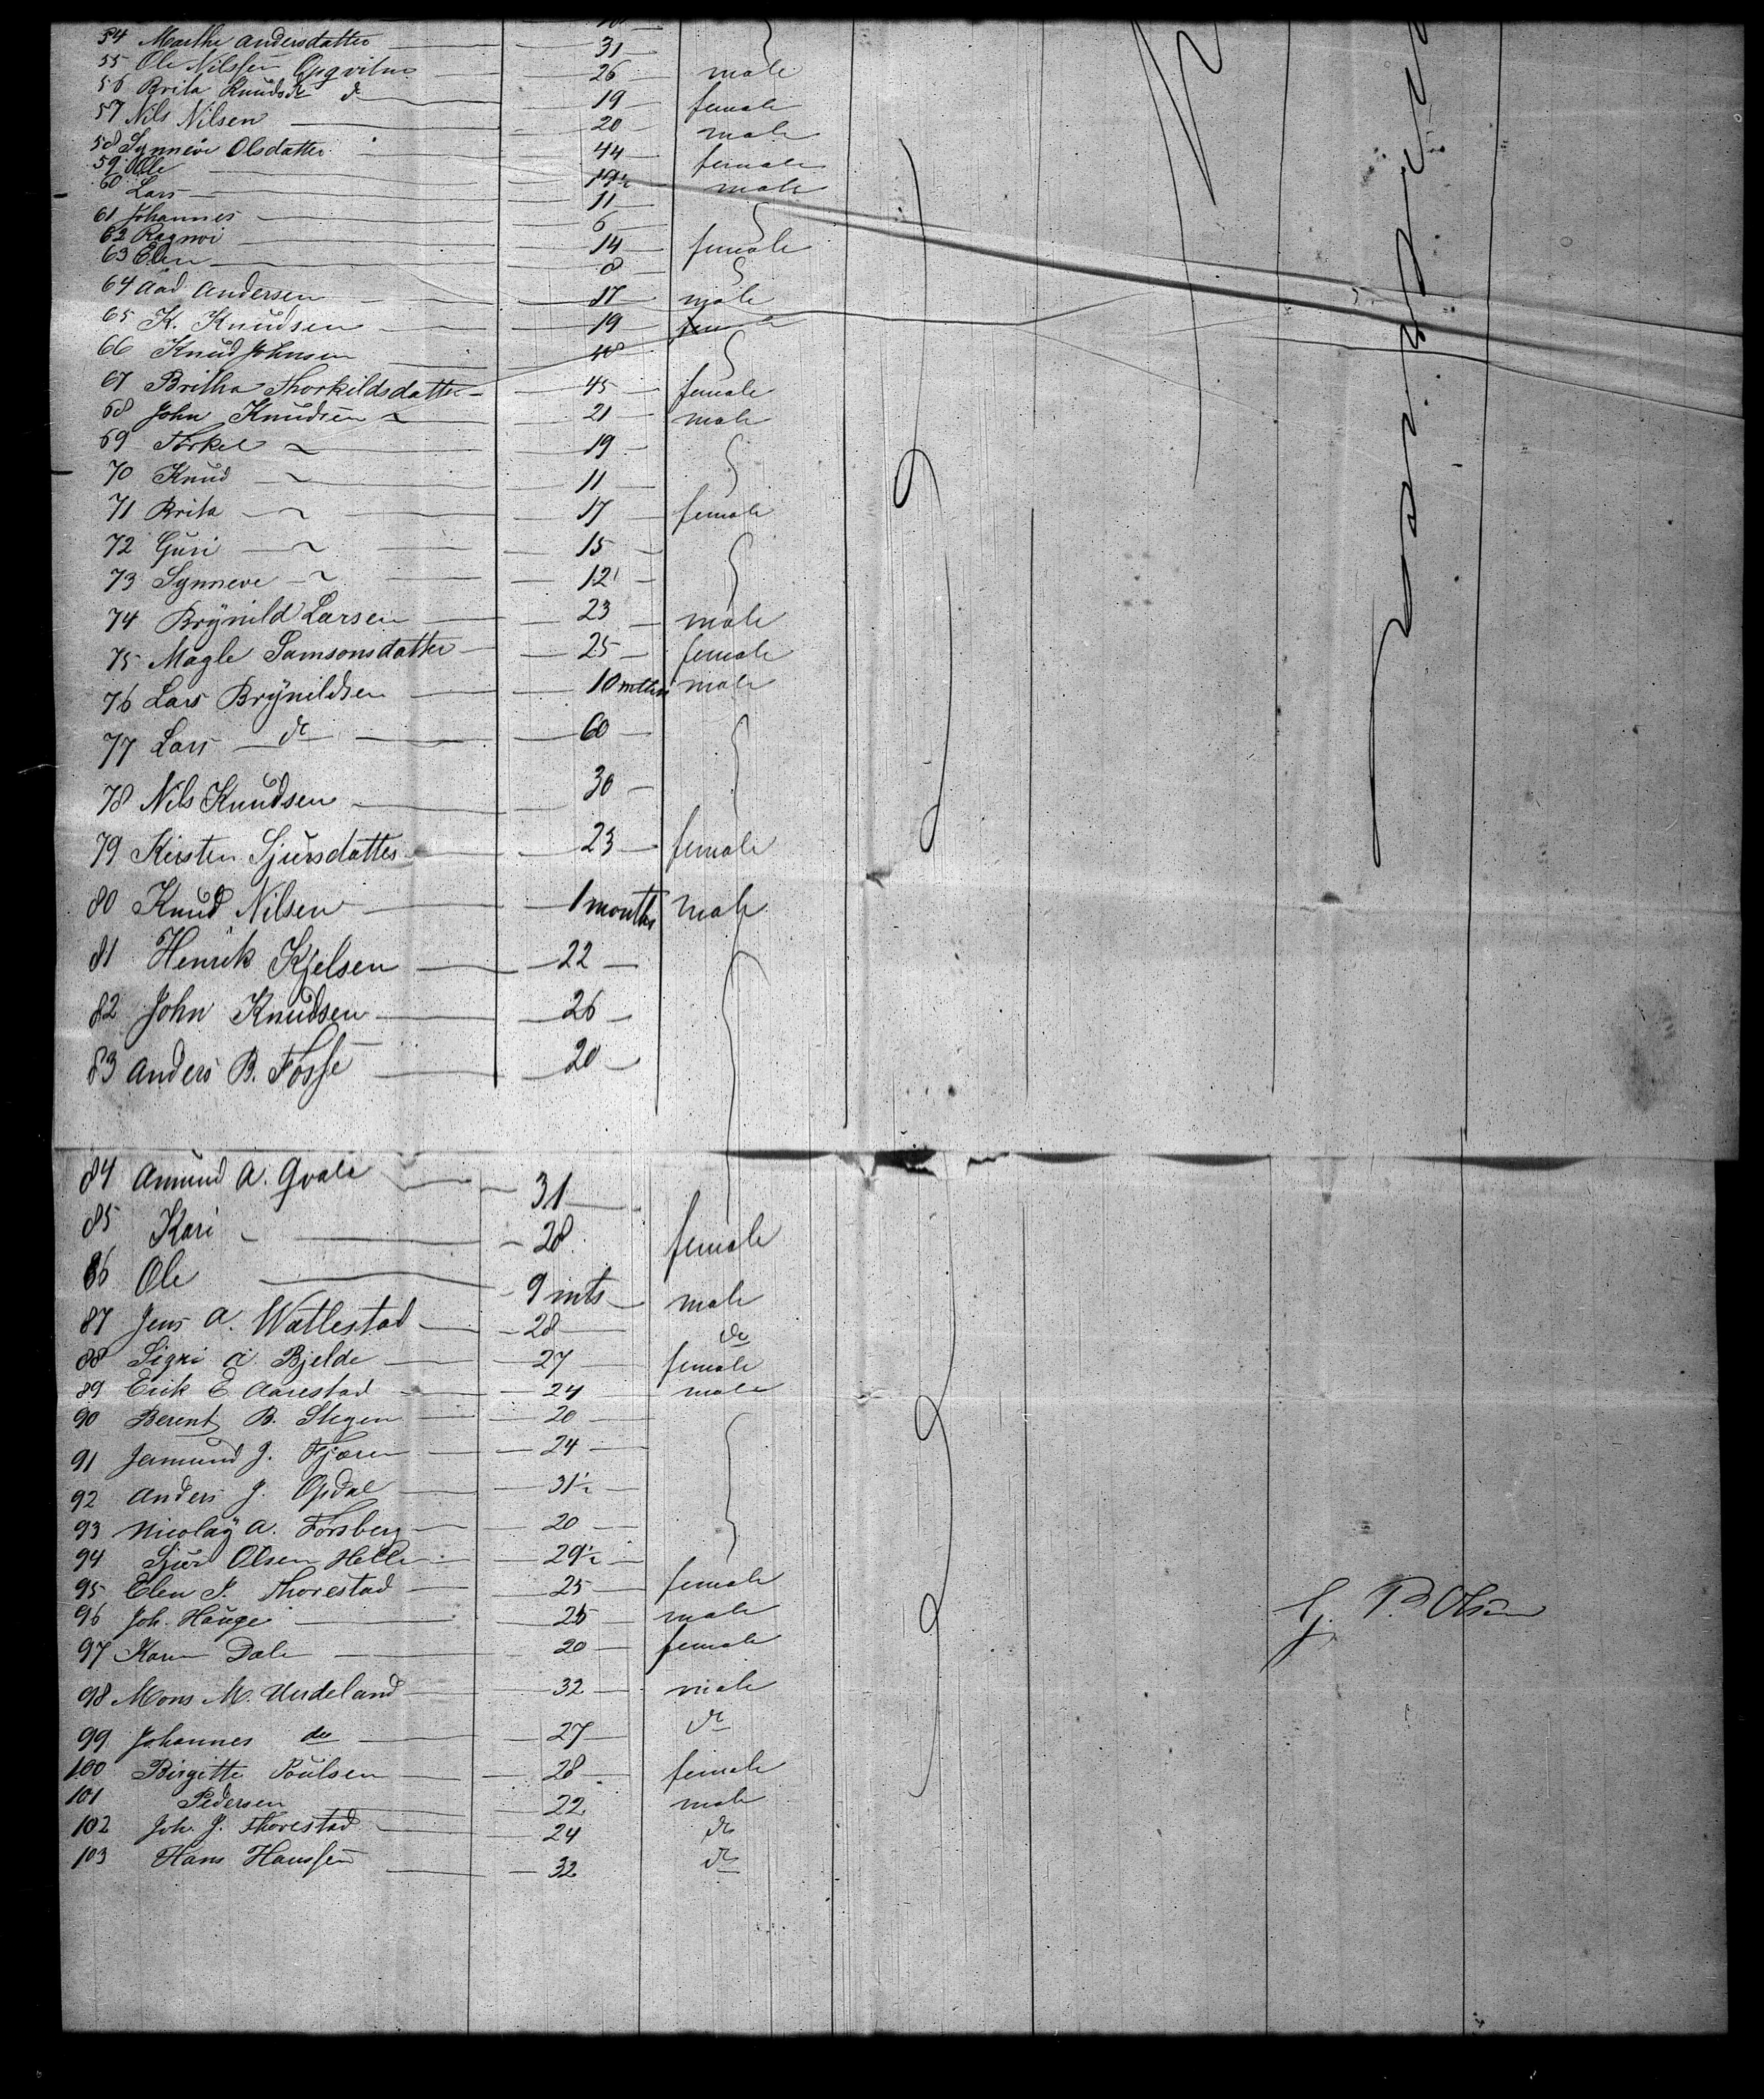 54 Marthe Andersdatter 31
55 Ole Nilssen Opqvitne 26 male
56 Brita Knudsdr do 19 female
57 Nils Nilsen 20 male
58 Synneve Olsdatter 44 female
59 Ole 19½ male
60 Lars 11
61 Johannes 6
62 Ragnvi 14 female
63 Elen 8
64 Aad Andersen 17 male
65 K. Knudsen 19
66 Knud Johnsen 48
67 Britha Thorkildsdatter 45 female
68 John Knudsen 21 male
69 Torkel 19
70 Knud 11
71 Brita 17 female
72 Guri 15
73 Synneve 12
74 Brÿnild Larsen 23 male
75 Magle Samsonsdatter 25 female
76 Lars Brÿnildsen 10 mths male
77 Lars do 60
78 Nils Knudsen 30
79 Kirsten Sjursdatter 23 female
80 Knud Nilsen 1 months male
81 Henrik Kjelsen 22
82 John Knudsen 26
83 Anders B. Fosse 20
84 Amund A. Qvale 31
85 Kari 28 female
86 Ole 9 mts male
87 Jens A. Watlestad 28 do
88 Sigri A. Bjelde 27 female
89 Erik E. Aarestad 24 male
90 Berent B. Stegen 20
91 Jamund J. Fjæren 24
92 Anders J. Opdal 31½
93 Nicolaÿ A. Forsberg 20
94 Sjur Olsen Helle 29½
95 Elen J. Thorestad 25 female
96 Joh. Hauge 25 male
97 Karen Dale 20 female
98 Mons M. Urdeland 32 male
99 Johannes do 27 do
100 Birgitte Poulsen 28 female
101 Pedersen 22 male
102 Joh. J. Thorestad 24 do
103 Hans Hanssen 32 do
P. Olsen